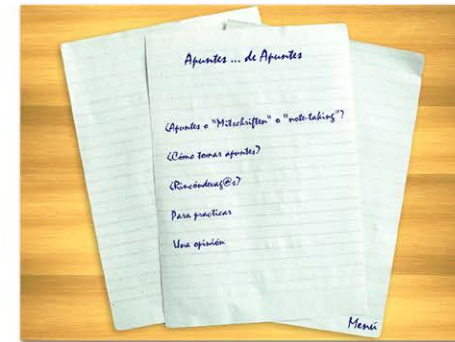 Apuntes ... de Apuntes
¿Apuntes o "Mitschriften" o "note-taking"?
¿Cómo tomar apuntes?
¿Rincóndevag@s?
Para practicar
Una opinión
Menú